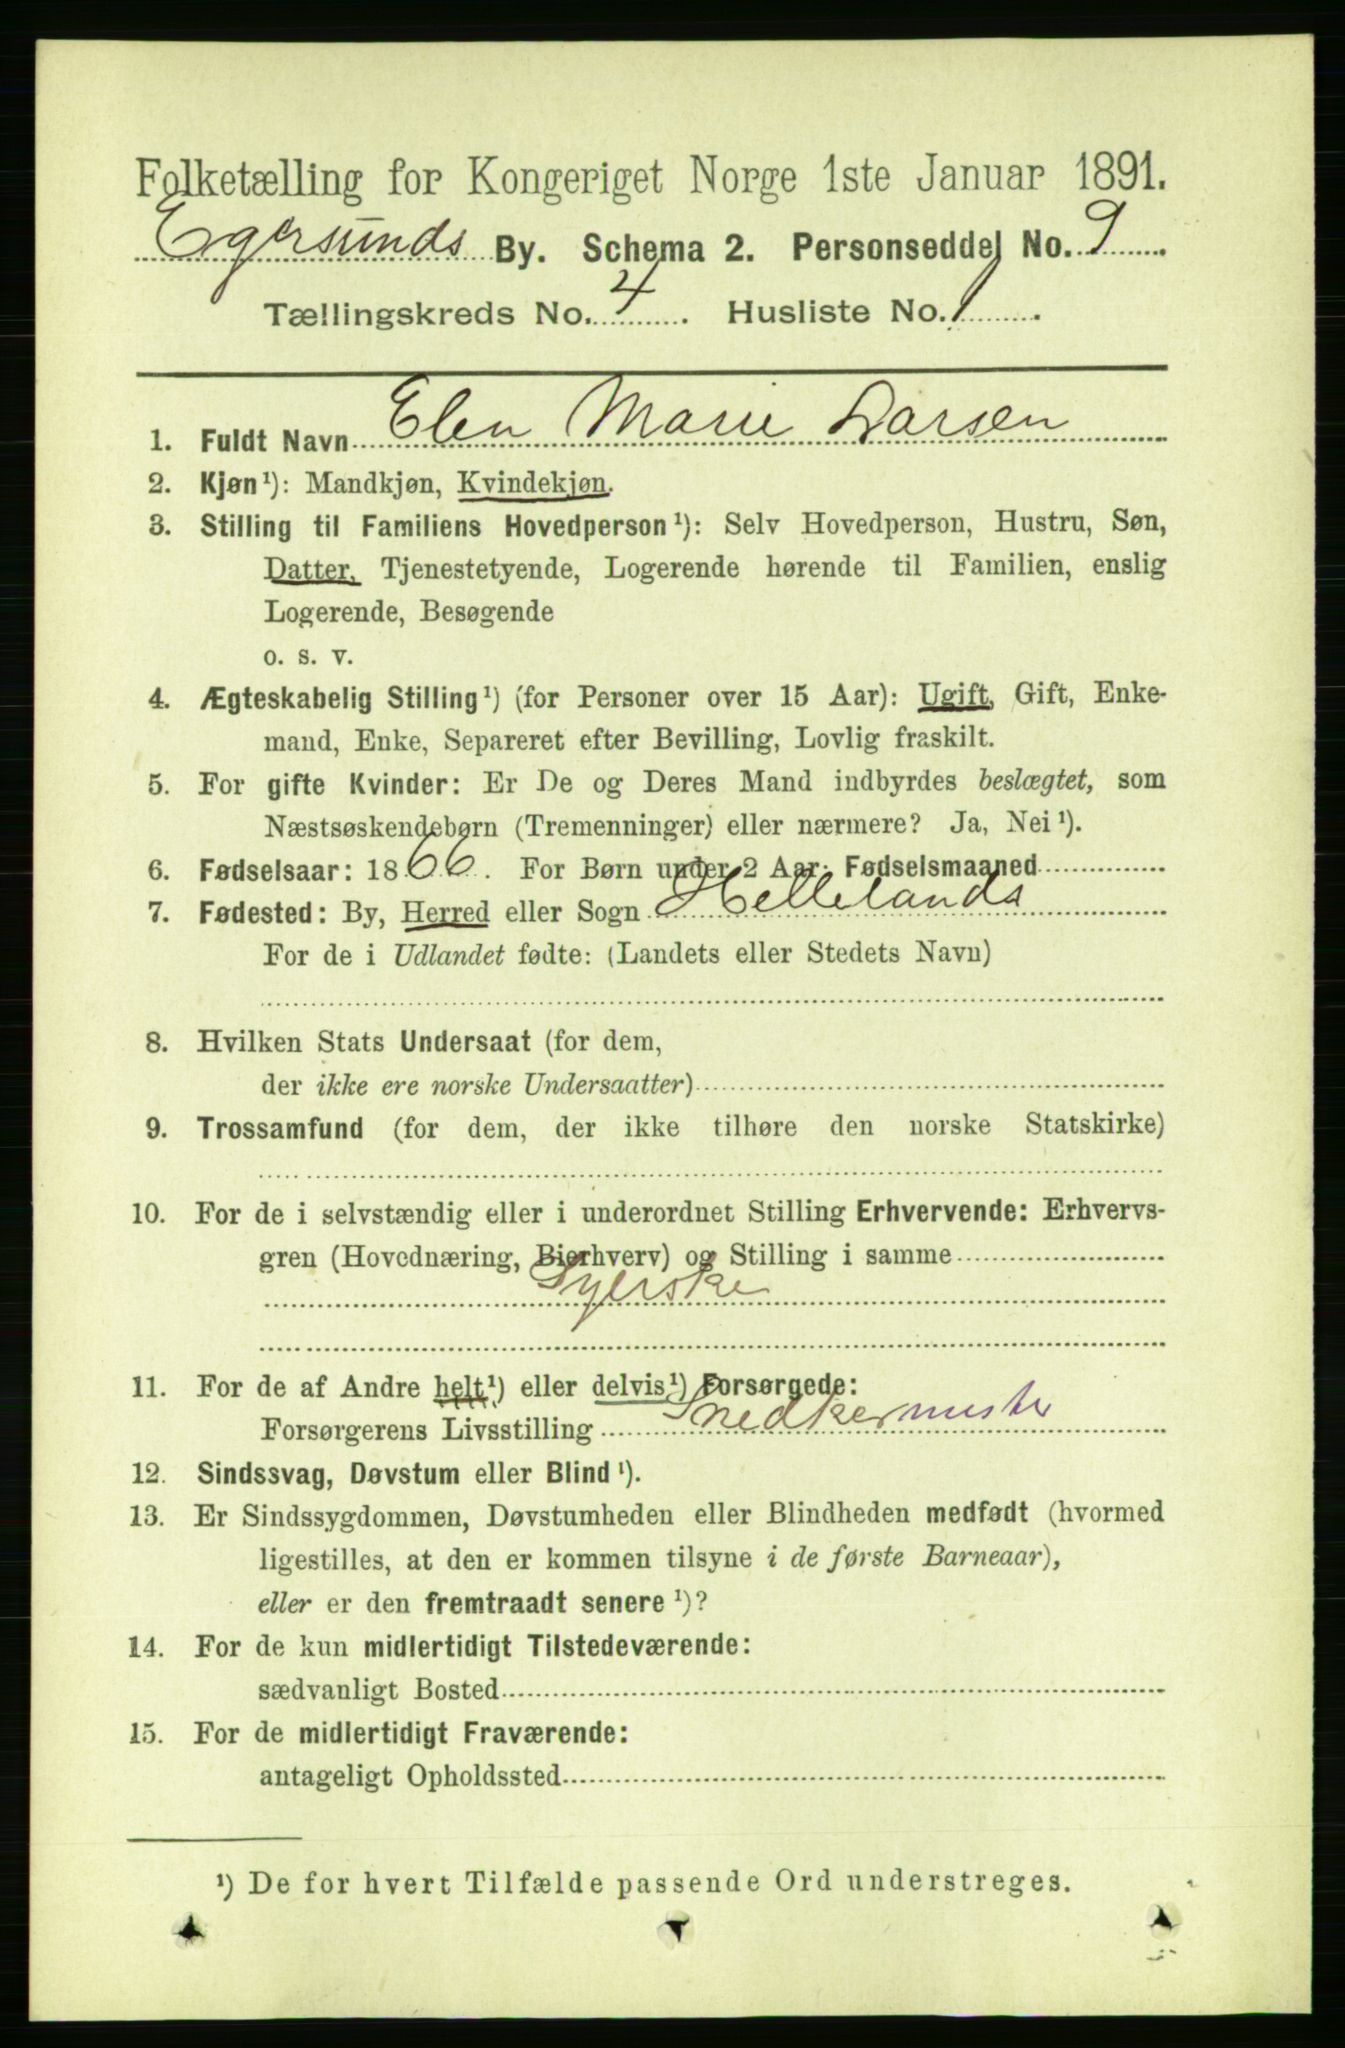 Folketælling for Kongeriget Norge 1ste Januar 1891.
Egersunds By. Schema 2. Personseddel No. 9
Tællingskreds No. 4. Husliste No. 1.
1. Fuldt Navn Elen Marie Larsen
2. Kjøn¹): Mandkjøn, Kvindekjøn.
3. Stilling til Familiens Hovedperson¹): Selv Hovedperson, Hustru, Søn,
Datter, Tjenestetyende, Logerende hørende til Familien, enslig
Logerende, Besøgende
o. s. v.
4. Ægteskabelig Stilling¹) (for Personer over 15 Aar): Ugift, Gift, Enke-
mand, Enke, Separeret efter Bevilling, Lovlig fraskilt.
5. For gifte Kvinder: Er De og Deres Mand indbyrdes beslægtet, som
Næstsøskendebørn (Tremenninger) eller nærmere? Ja, Nei¹).
6. Fødselsaar: 1866. For Børn under 2 Aar: Fødselsmaaned
7. Fødested: By, Herred eller Sogn Hellelands
For de i Udlandet fødte: (Landets eller Stedets Navn)
8. Hvilken Stats Undersaat (for dem,
der ikke ere norske Undersaatter)
9. Trossamfund (for dem, der ikke tilhøre den norske Statskirke)
10. For de i selvstændig eller i underordnet Stilling Erhvervende: Erhvervs-
gren (Hovednæring, Bierhverv) og Stilling i samme
Syerske
11. For de af Andre helt¹) eller delvis¹) Forsørgede:
Forsørgerens Livsstilling Snedkermester
12. Sindssvag, Døvstum eller Blind¹).
13. Er Sindssygdommen, Døvstumheden eller Blindheden medfødt (hvormed
ligestilles, at den er kommen tilsyne i de første Barneaar),
eller er den fremtraadt senere¹)?
14. For de kun midlertidigt Tilstedeværende:
sædvanligt Bosted
15. For de midlertidigt Fraværende:
antageligt Opholdssted
¹) De for hvert Tilfælde passende Ord understreges.